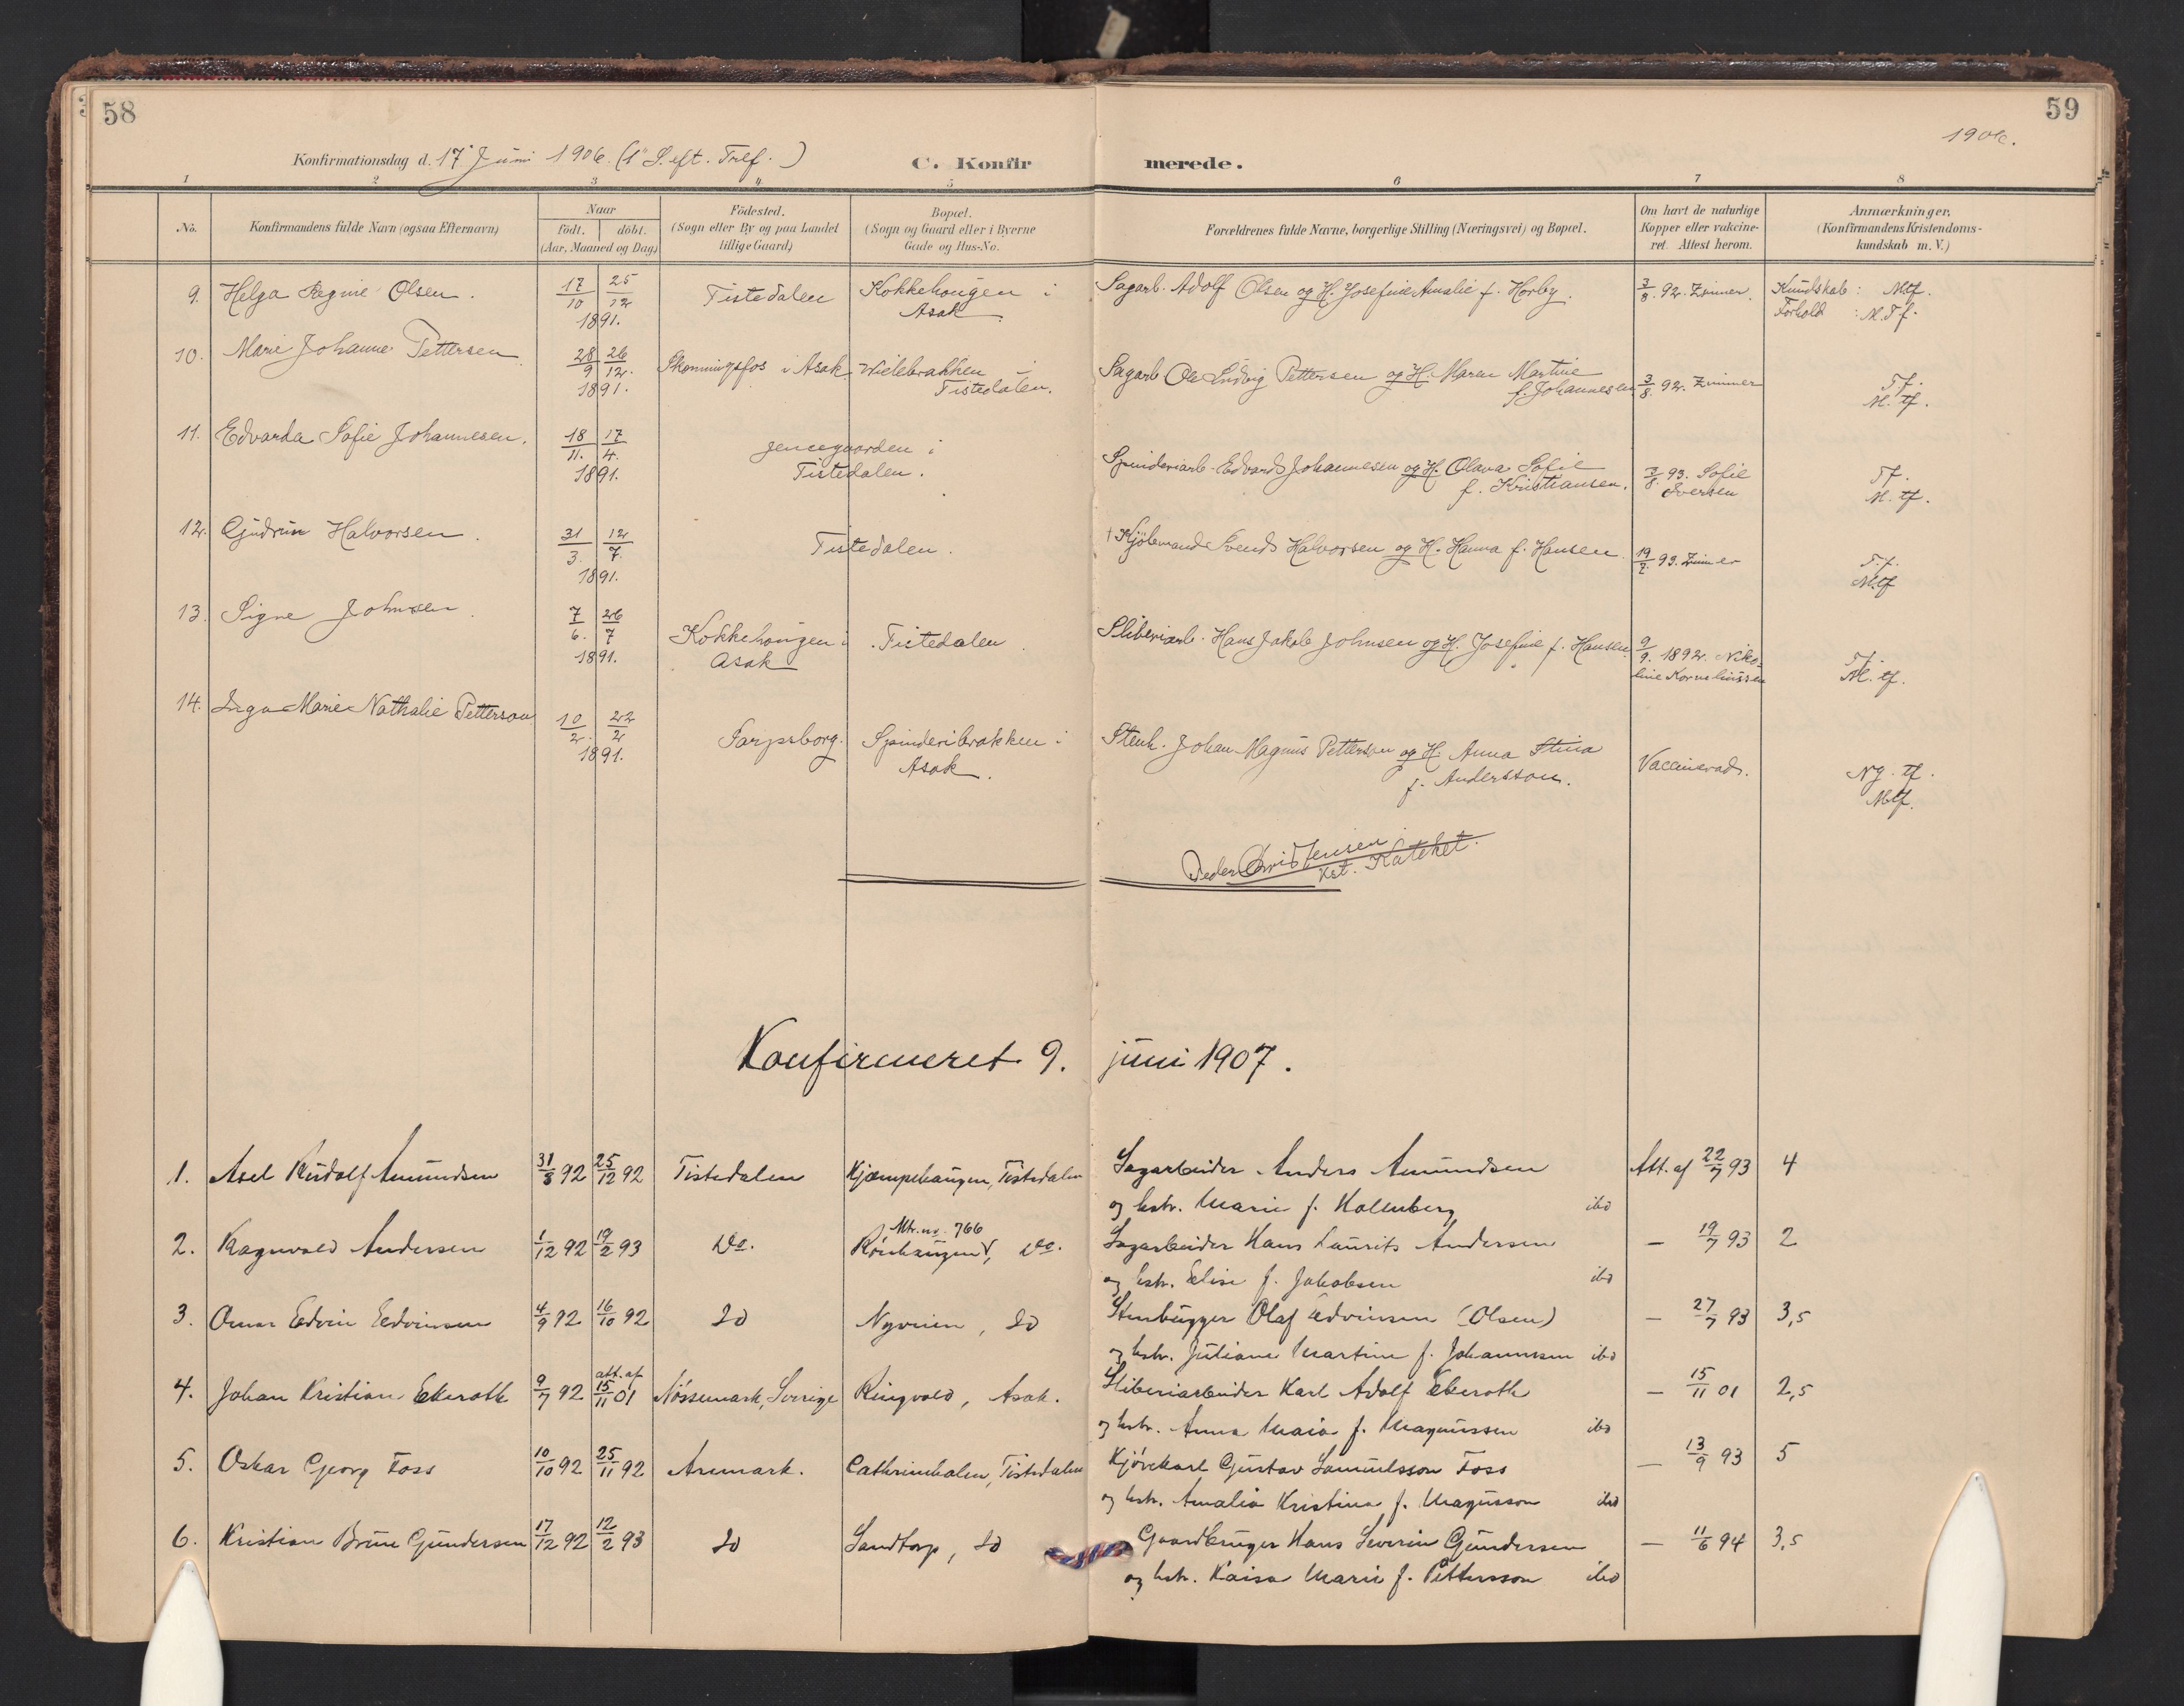 58
59
1906.
Konfirmationsdag d. 17de Juni 1906. (1ste S. eft. Tref.)
C. Konfir merede.
1 2 3 4 5 6 7 8
No. Konfirmandens fulde Navn (ogsaa Efternavn) Naar Födested. Bopæl. Forældrenes fulde Navne, borgerlige Stilling (Næringsvei) og Bopæl. Om havt de naturlige Anmærkninger,
födt. döbt. (Sogn eller By og paa Landet (Sogn og Gaard eller i Byerne Kopper eller vakcine- (Konfirmandens Kristendoms-
(Aar, Maaned og Dag) tillige Gaard) Gade og Hus-No. ret. Attest herom. kundskab m. V.)
9. Helga Regine Olsen. 17/10 25/12 Tistedalen Kokkehougen i Sagarb. Adolf Olsen og H. Josefine Amalie f. Horby. 3/8 92. Zimmer. Kundskab: Mtf.
1891. Asak Forhold: M.T.f.
10. Marie Johanne Pettersen 28/9 26/12. Skonningsfos i Asak Wielebrakken i Sagarb. Ole Ludvig Pettersen og H. Maren Martine 3/8 92. Zimmer T.f.
1891. Tistedalen. f. Johannesen M. tf.
11. Edvarda Sofie Johannesen. 18/11. 17/4. Jensegaarden i Spinderiarb. Edvard Johannesen og H. Olava Sofie 3/8. 93. Sofie T.f.
1891. Tistedalen. f. Kristiansen. Iversen M. tf.
12. Gudrun Halvorsen. 31/3. 12/7. Tistedalen. † Kjöbmand Svend Halvorsen og H. Hanna f. Hansen 19/7. 93. Zimmer T.f.
1891. M.tf
13. Signe Johnsen 7/6. 26/7 Kokkehougen i Tistedalen. Sliberiarb. Hans Jakob Johnsen og H. Josefine f. Hansen 9/9. 1892. Niko- T.f.
1891. Asak line Kornelinssen M. tf.
14. Inga Marie Nathalie Petterson 10/2. 22/2 Sarpsborg. Spinderibrakken i Stenh. Johan Magnus Petterson og H. Anna Stina Vaccinerad. Ng. tf.
1891. Asak. f. Andersson. Mtf.
Peder Christensen
Kst. Kateket.
Konfirmeret 9. juni 1907.
1. Axel Rudolf Amundsen 31/8 92 25/12 92 Tistedalen Kjæmpehaugen, Tistedalen Sagarbeider Anders Amundsen Att. af 22/7 93 4
og hstr. Marie f. Hallenberg ibd
Mtr. no. 766
2. Ragnvald Andersen 1/12 92 19/2 93 Do. Rönhaugen, do. Sagarbeider Hans Laurits Andersen — 19/7 93 2
og hstr. Elise f. Jakobsen ibd
3. Omar Edvin Edvinsen 4/9 92 16/10 92 do Nyveien, do Stenhugger Olaf Edvinsen (Olsen) — 27/7 93 3,5
og hstr. Juliane Martine f. Johannesen ibd
att. af
4. Johan Kristian Ekeroth 9/7 92 15/11 01 Nössemark, Sverige Ringvold, Asak. Sliberiarbeider Karl Adolf Ekeroth — 15/11 01 2,5
og hstr. Anna Maria f. Magnussen ibd
5. Oskar Georg Foss 10/10 92 25/11 92 Aremark. Cathrineholm, Tistedalen Kjörekarl Gustav Samuelsson Foss — 13/9 93 5
og hstr. Amalia Kristina f. Magnusson ibd
6. Kristian Brune Gundersen 17/12 92 12/2 93 do Sandtorp, do Gaardbruger Hans Severin Gundersen — 11/6 94 3,5
og hstr. Kaisa Marie f. Pettersson ibd